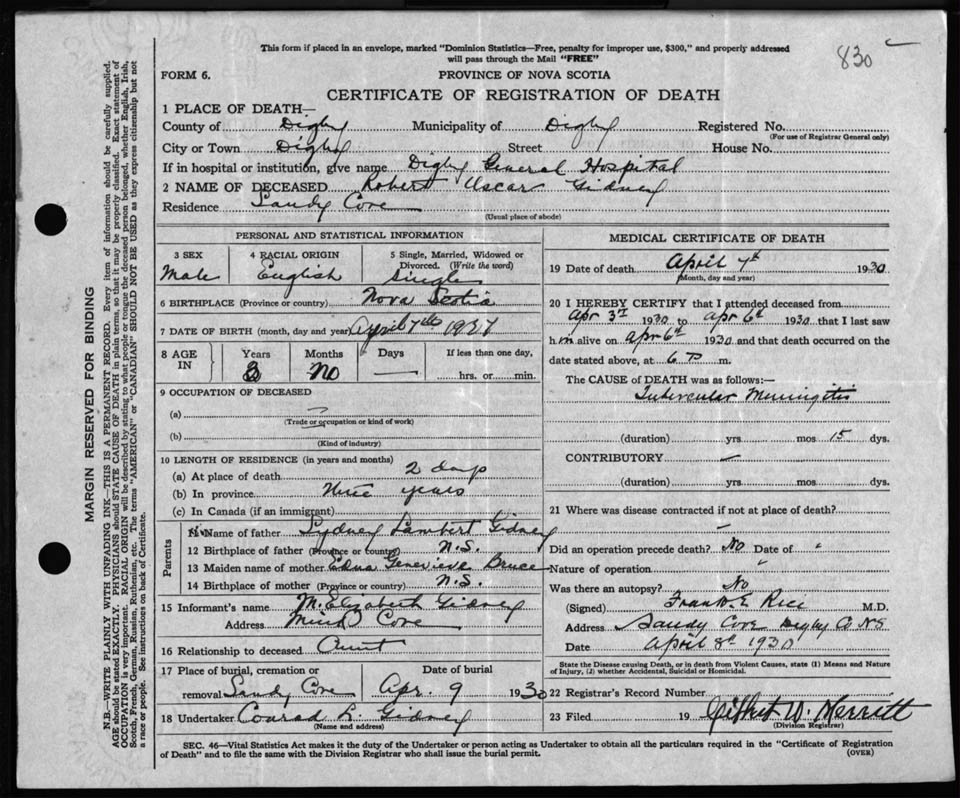 830
This form if placed in an envelope, marked "Dominion Statistics—Free, penalty for improper use, $300," and properly addressed
will pass through the Mail "FREE"
FORM 6.
PROVINCE OF NOVA SCOTIA
CERTIFICATE OF REGISTRATION OF DEATH
1 PLACE OF DEATH—
County of Digby Municipality of Digby Registered No.
(For use of Registrar General only)
City or Town Digby Street House No.
If in hospital or institution, give name Digby General Hospital
2 NAME OF DECEASED Robert Oscar Gidney
Residence Sandy Cove
(Usual place of abode)
PERSONAL AND STATISTICAL INFORMATION
3 SEX 4 RACIAL ORIGIN 5 Single, Married, Widowed or
Divorced. (Write the word)
Male English Single
6 BIRTHPLACE (Province or country) Nova Scotia
7 DATE OF BIRTH (month, day and year) April 7th 1927
8 AGE IN Years Months Days If less than one day,
3 No — hrs. or min.
9 OCCUPATION OF DECEASED
(a) —
(Trade or occupation or kind of work)
(b)
(Kind of industry)
10 LENGTH OF RESIDENCE (in years and months)
(a) At place of death 2 days
(b) In province three years
(c) In Canada (if an immigrant)
Parents
11 Name of father Sydney Lambert Gidney
12 Birthplace of father (Province or country) N.S.
13 Maiden name of mother Edna Genevieve Bruce
14 Birthplace of mother (Province or country) N.S.
15 Informant's name M. Elizabeth Gidney
Address Mink Cove
16 Relationship to deceased Aunt
17 Place of burial, cremation or Date of burial
removal Sandy Cove Apr. 9 1930
18 Undertaker Conrad L. Gidney
(Name and address)
MEDICAL CERTIFICATE OF DEATH
19 Date of death April 7th 1930
(Month, day and year)
20 I HEREBY CERTIFY that I attended deceased from
Apr 3rd 1930 to Apr 6th 1930 that I last saw
him alive on Apr 6th 1930 and that death occurred on the
date stated above, at 6 P m.
The CAUSE of DEATH was as follows:—
Tubercular Meningitis
(duration) yrs mos 15 dys.
CONTRIBUTORY —
(duration) yrs mos dys.
21 Where was disease contracted if not at place of death?
—
Did an operation precede death? No Date of "
Nature of operation "
Was there an autopsy? No
(Signed) Frank E. Rice M.D.
Address Sandy Cove Digby Co NS
Date April 8th 1930
State the Disease causing Death, or in death from Violent Causes, state (1) Means and Nature
of Injury, (2) whether Accidental, Suicidal or Homicidal.
22 Registrar's Record Number
23 Filed 19 Gilbert W. Merritt
(Division Registrar)
SEC. 46—Vital Statistics Act makes it the duty of the Undertaker or person acting as Undertaker to obtain all the particulars required in the "Certificate of Registration
of Death" and to file the same with the Division Registrar who shall issue the burial permit.
(OVER)
MARGIN RESERVED FOR BINDING
N.B.—WRITE PLAINLY WITH UNFADING INK—THIS IS A PERMANENT RECORD. Every item of information should be carefully supplied.
AGE should be stated EXACTLY. PHYSICIANS should STATE CAUSE OF DEATH in plain terms, so that it may be properly classified. Exact statement of
OCCUPATION is very important. RACIAL ORIGIN will be described by stating to what people or tongue the deceased person belonged, whether English, Irish,
Scotch, French, German, Russian, Ruthenian, etc. The terms "AMERICAN" or "CANADIAN" SHOULD NOT BE USED as they express citizenship but not
a race or people. See instructions on back of Certificate.